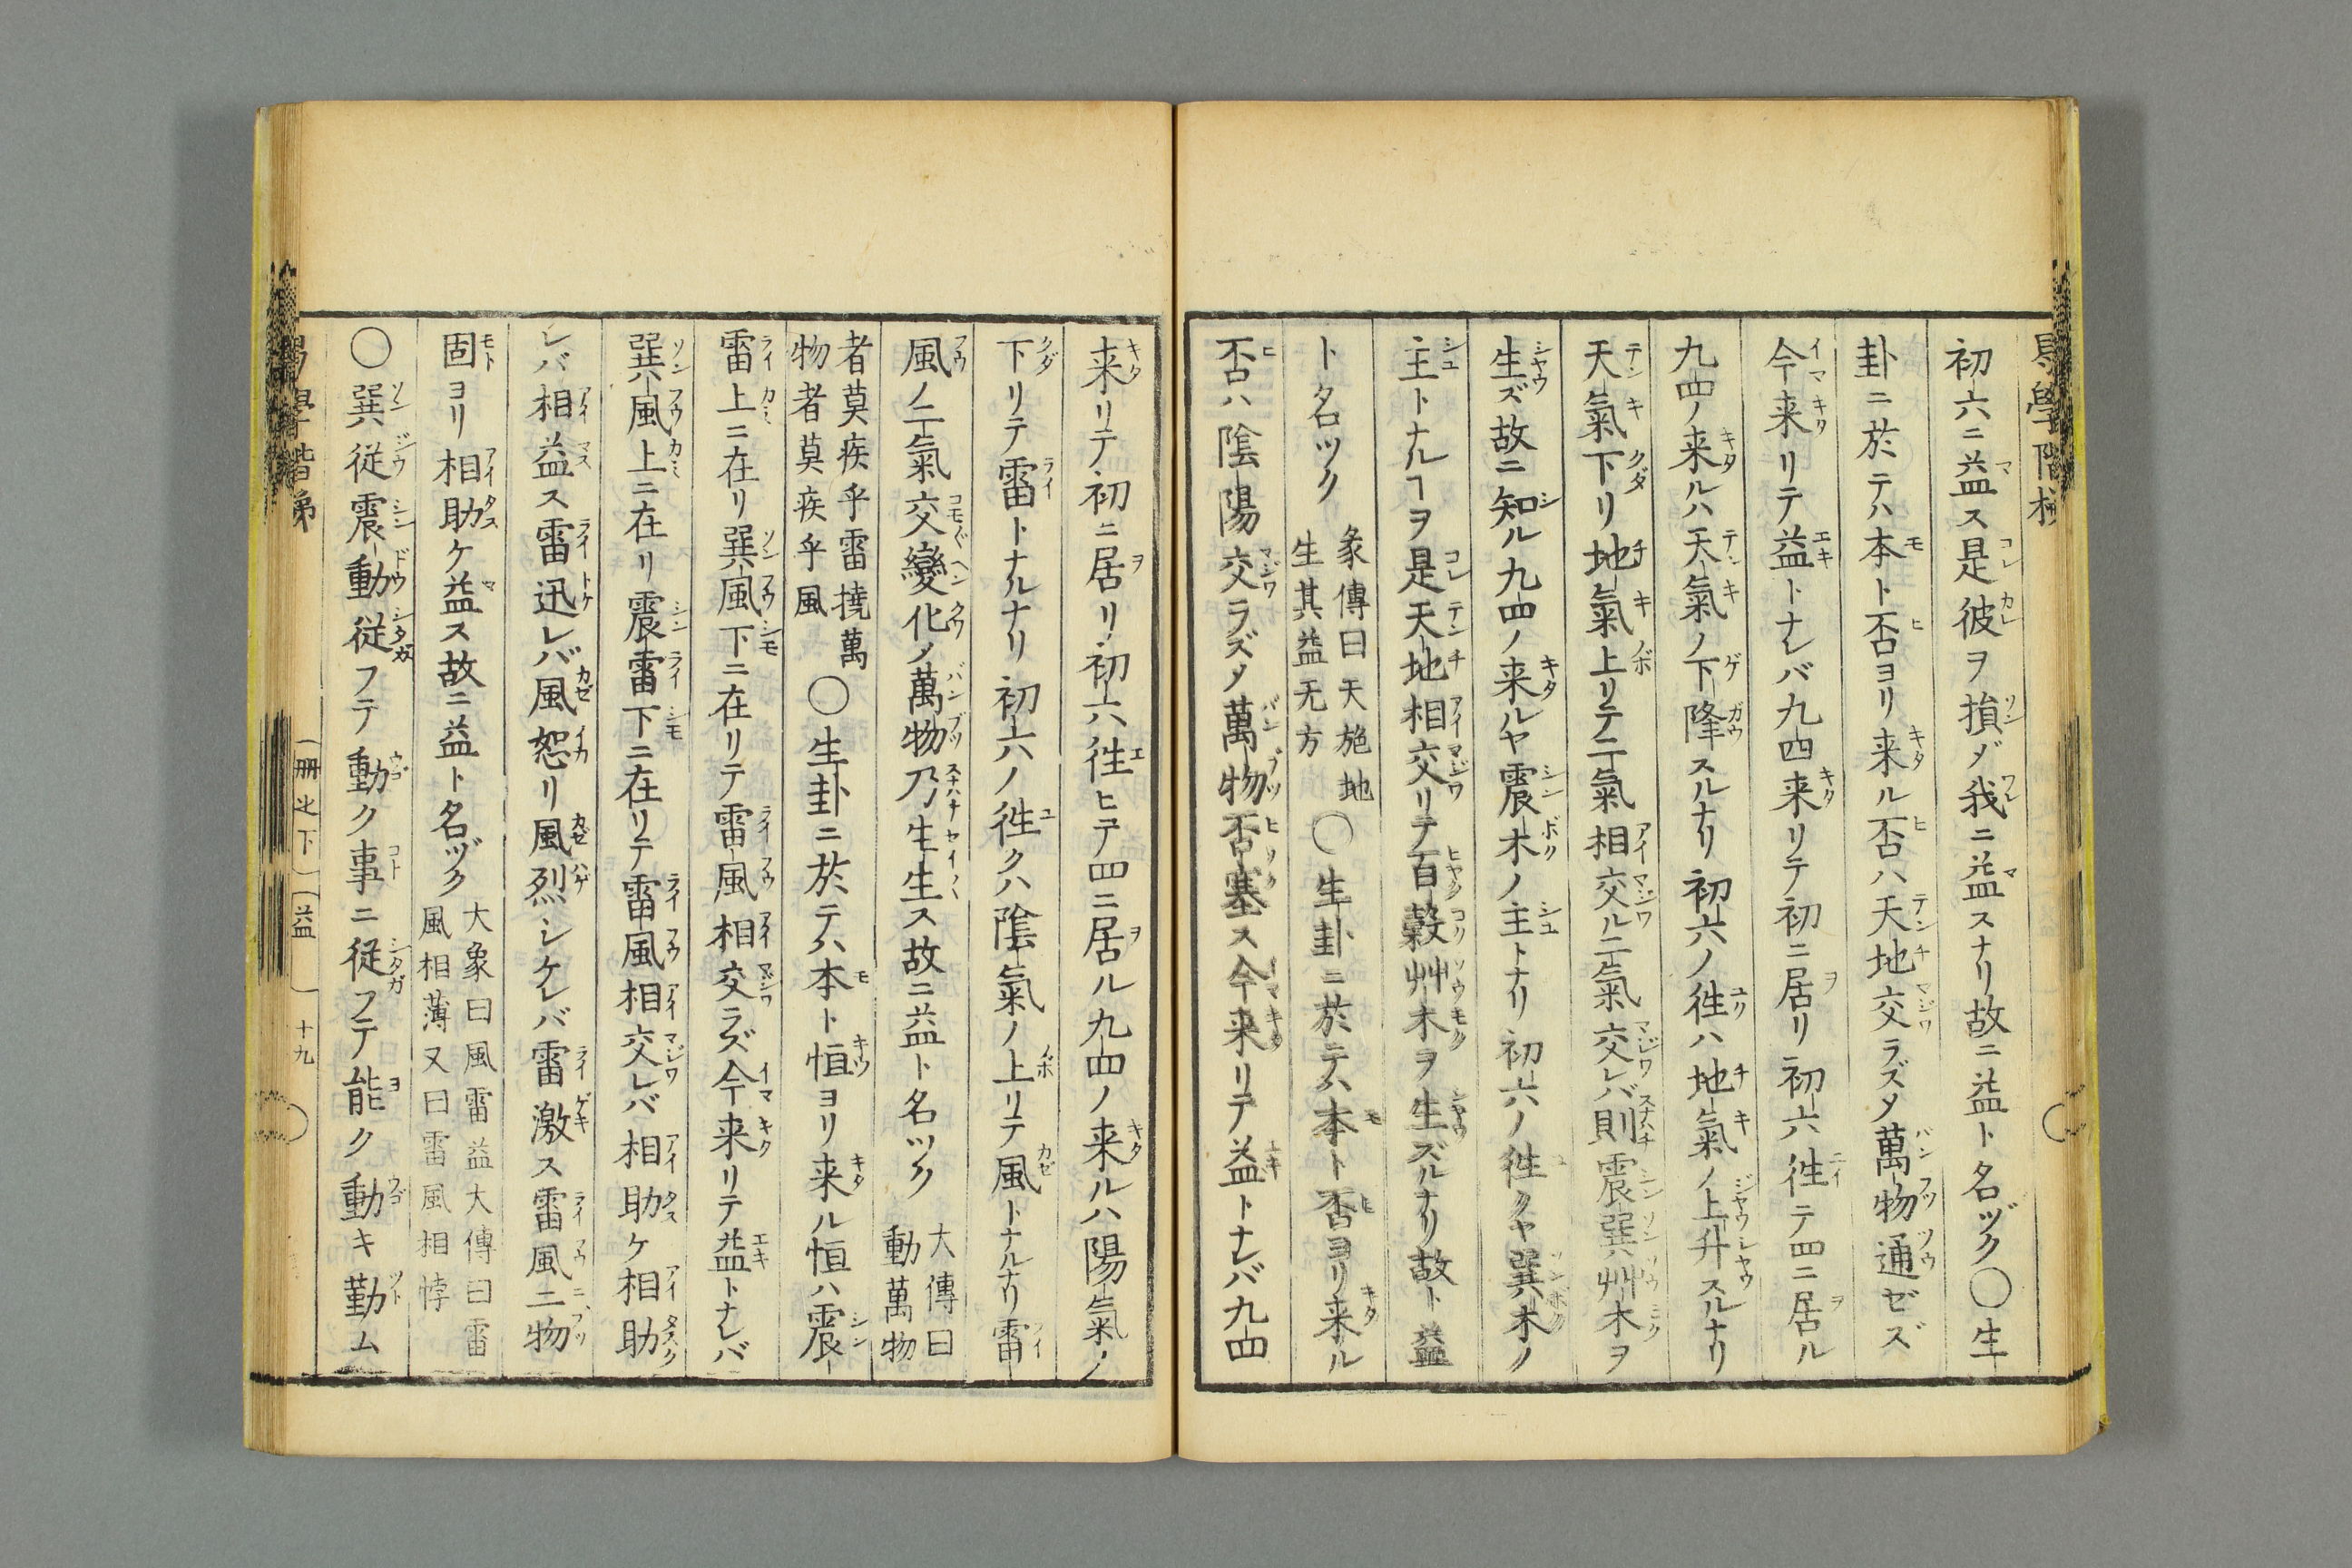 初六ニ益ス是彼ヲ損ゾ我ニ益スナリ故ニ益ト名ヅク〇生
卦ニ於テハ本ト否ヨリ来ル否ハ天地交ラズメ萬物通ゼズ
今来リテ益トナレバ九四来リテ初ニ居リ初六徃テ四ニ居ル
九四ノ来ルハ天氣ノ下降スルナリ初六ノ徃ハ地氣ノ上升スルナリ
天氣下リ地氣上リテ二氣相交ル二氣交レバ則震巽艸木ヲ
生ズ故ニ知ル九四ノ来ルヤ震木ノ主トナリ初六ノ徃クヤ巽木ノ
主トナルヿヲ是天地相交リテ百穀艸木ヲ生ズルナリ故ト益
ト名ツク
彖傳曰天施地
生其益无方
〇生卦ニ於テハ本ト否ヨリ来ル
否ハ陰陽交ラズメ萬物否塞ス今来リテ益トナレバ九四
来リテ初ニ居リ初六徃ヒテ四ニ居ル九四ノ来ルハ陽氣ノ
下リテ雷トナルナリ初六ノ徃クハ陰氣ノ上リテ風トナルナリ雷
風ノ二氣交變化ノ萬物乃生生ス故ニ益ト名ツク
大傳曰
動萬物
者莫疾乎雷撓萬
物者莫疾乎風
〇生卦ニ於テハ本ト恒ヨリ来ル恒ハ震
雷上ニ在リ巽風下ニ在リテ雷風相交ラズ今来リテ益トナレバ
巽風上ニ在リ震雷下ニ在リテ雷風相交レバ相助ケ相助
レバ相益ス雷迅レバ風恕リ風烈シケレバ雷激ス雷風二物
固ヨリ相助ケ益ス故ニ益ト名ヅク
大象曰風雷益大傳曰雷
風相薄又曰雷風相悖
〇巽従震動従フテ動ク事ニ従フテ能ク動キ勤ム
冊之下
益
十九